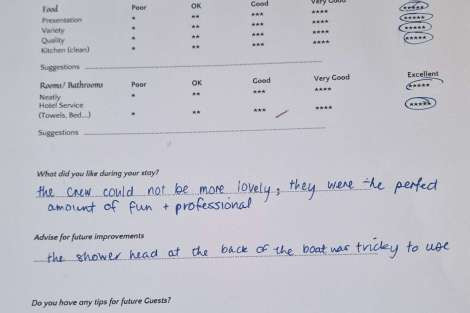 Food Poor OK Good Very Good *****
Presentation * ** *** **** *****
Variety * ** *** **** *****
Quality * ** *** **** *****
Kitchen (clean) * ** *** ****
Suggestions
Rooms/ Bathrooms Poor OK Good Very Good Excellent
Neatly * ** *** **** *****
Hotel Service
(Towels, Bed...) * ** *** **** *****
Suggestions
What did you like during your stay?
the crew could not be more lovely, they were the perfect
amount of fun + professional
Advise for future improvements
the shower head at the back of the boat was tricky to use
Do you have any tips for future Guests?